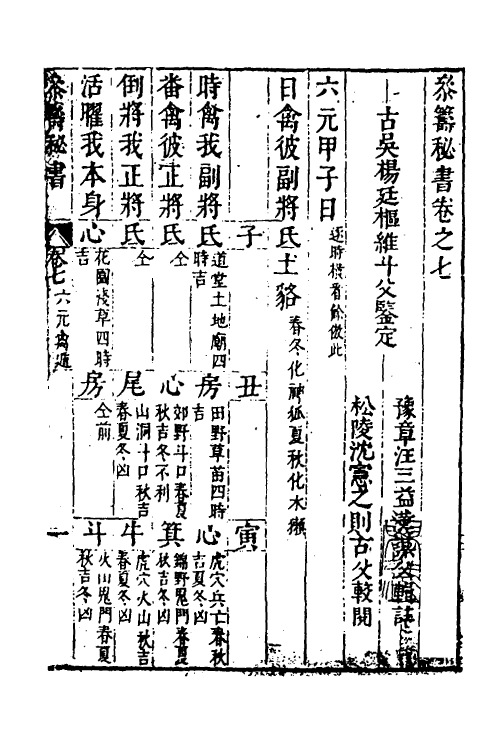 參籌秘書卷之七
古吳楊廷樞維斗父鑒定
豫章汪三益漢謀父輯註
松陵沈憲之則古父較閱
六元甲子日 逐時橫看餘倣此
日禽彼副將氐土貉 春冬化神狐夏秋化木獺
子 丑 寅
時禽我副將氐 道堂土地廟四時吉 房 田野草苗四時吉 心 虎穴兵亡春秋吉夏冬凶
畨禽彼正將氐 仝 心 郊野斗口春夏秋吉冬不利 箕 錦野鬼門春夏秋吉冬凶
倒將我正將氐 仝 尾 山洞斗口秋吉春夏冬凶 牛 虎穴火山秋吉春夏冬凶
活曜我本身心 花園淺草四時吉 房 仝前 斗 火山鬼門春夏秋吉冬凶
參籌秘書 卷七 六元禽遁 一